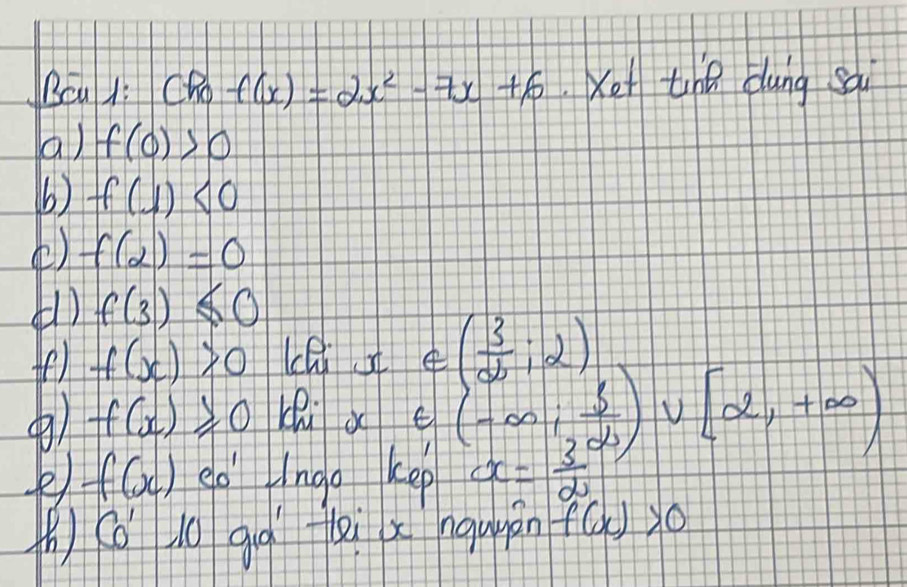 Bài 1: Cho f(x) = 2x² - 7x + 6. Xét tính đúng sai
a) f(0) > 0
b) f(1) < 0
c) f(2) = 0
d) f(3) ≤ 0
f) f(x) > 0 khi x ∈ (3/2; 2)
g) f(x) ≥ 0 khi x ∈ (-∞; 3/2) ∪ [2, +∞)
e) f(x) có 1 ngo kép x = 3/2
h) Có 10 giá trị x nguyên f(x) > 0